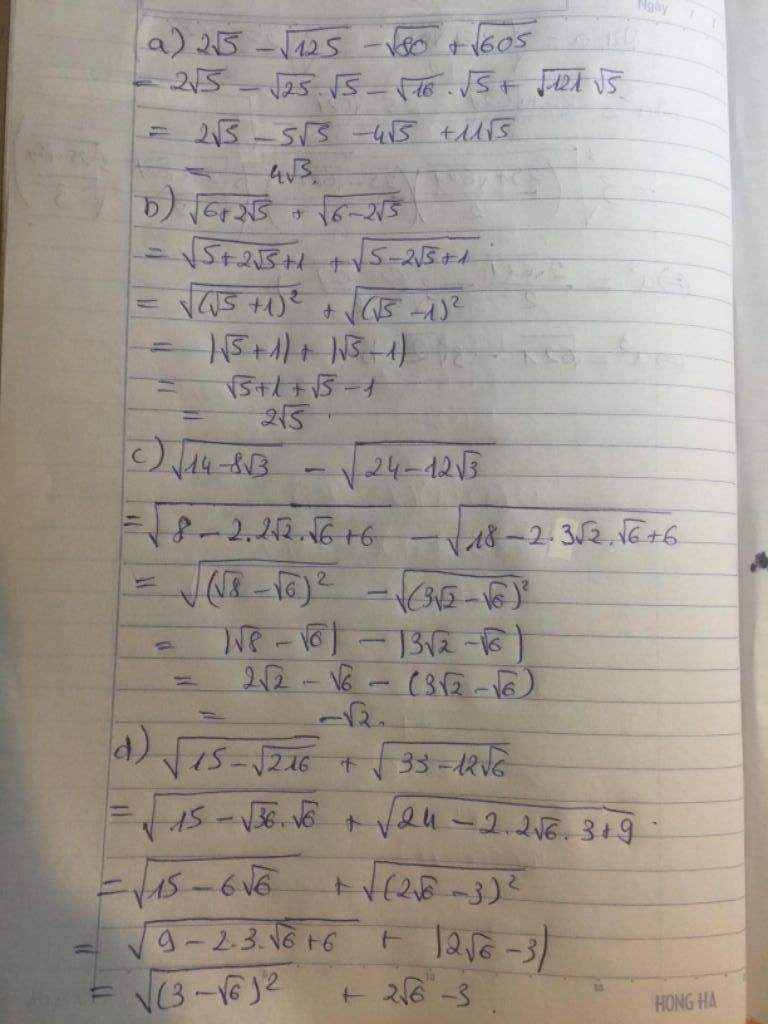 Ngày
a) 2√5 - √125 - √80 + √605
= 2√5 - √25.√5 - √16.√5 + √121 √5
= 2√5 - 5√5 - 4√5 + 11√5
= 4√5.
b) √(6+2√5) + √(6-2√5)
= √(5+2√5+1) + √(5-2√5+1)
= √((√5+1)²) + √((√5-1)²)
= |√5+1| + |√5-1|
= √5+1+√5-1
= 2√5.
c) √(14-8√3) - √(24-12√3)
= √(8-2.2√2.√6+6) - √(18-2.3√2.√6+6)
= √((√8-√6)²) - √((3√2-√6)²)
= |√8-√6| - |3√2-√6|
= 2√2-√6-(3√2-√6)
= -√2.
d) √(15-√216) + √(33-12√6)
= √(15-√36.√6) + √(24-2.2√6.3+9)
= √(15-6√6) + √((2√6-3)²)
= √(9-2.3.√6+6) + |2√6-3|
= √((3-√6)²) + 2√6-3.
HONG HA